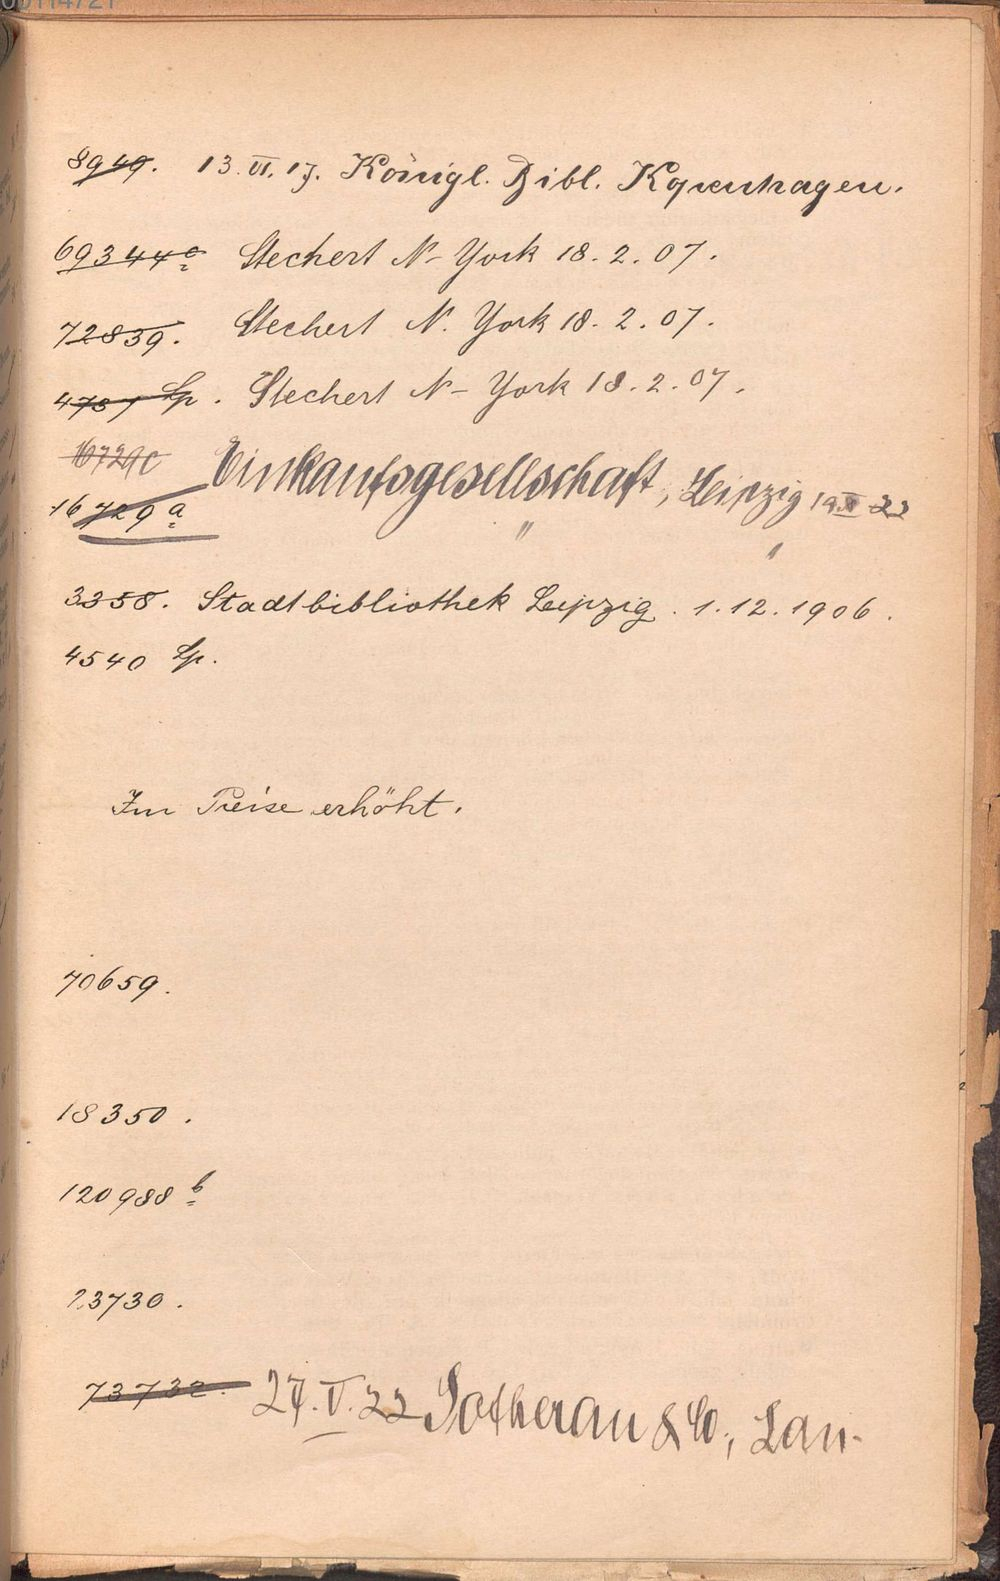 8949. 13.VI.17. Königl. Bibl. Kopenhagen.
69344c Stechert N-York 18.2.07.
72839. Stechert N. York 18.2.07.
Lp. Stechert N-York 18.2.07.
16729c Einkaufsgesellschaft, Leipzig
16729a " "
3358. Stadtbibliothek Leipzig. 1.12.1906.
4540 Lp.
Im Preise erhöht.
70659.
18350.
120988 b
23730.
73732. 27.V.22 Sotheran & Co., Lon-